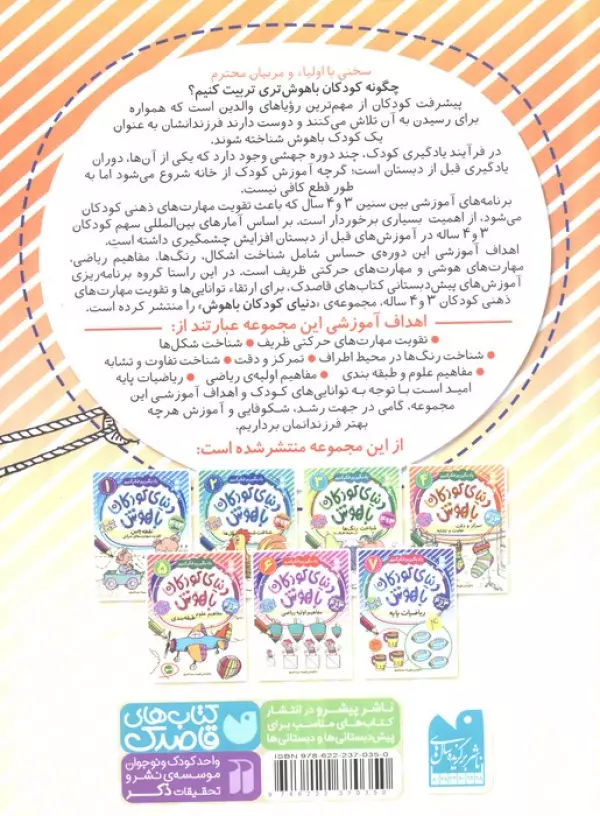 سخنی با اولیاء و مربیان محترم
چگونه کودکان باهوش‌تری تربیت کنیم؟
پیشرفت کودکان از مهم‌ترین رؤیاهای والدین است که همواره
برای رسیدن به آن تلاش می‌کنند و دوست دارند فرزندانشان به عنوان
یک کودک باهوش شناخته شوند.
در فرآیند یادگیری کودک، چند دوره جهشی وجود دارد که یکی از آن‌ها، دوران
یادگیری قبل از دبستان است؛ گرچه آموزش کودک از خانه شروع می‌شود اما به
طور قطع کافی نیست.
برنامه‌های آموزشی بین سنین ۳ و ۴ سال که باعث تقویت مهارت‌های ذهنی کودکان
می‌شود، از اهمیت بسیاری برخوردار است. بر اساس آمارهای بین‌المللی سهم کودکان
۳ و ۴ ساله در آموزش‌های قبل از دبستان افزایش چشمگیری داشته است.
اهداف آموزشی این دوره‌ی حساس شامل شناخت اشکال، رنگ‌ها، مفاهیم ریاضی،
مهارت‌های هوشی و مهارت‌های حرکتی ظریف است. در این راستا گروه برنامه‌ریزی
آموزش‌های پیش‌دبستانی کتاب‌های قاصدک، برای ارتقاء توانایی‌ها و تقویت مهارت‌های
ذهنی کودکان ۳ و ۴ ساله، مجموعه‌ی «دنیای کودکان باهوش» را منتشر کرده است.
اهداف آموزشی این مجموعه عبارتند از:
• تقویت مهارت‌های حرکتی ظریف • شناخت شکل‌ها
• شناخت رنگ‌ها در محیط اطراف • تمرکز و دقت • شناخت تفاوت و تشابه
• مفاهیم علوم و طبقه بندی • مفاهیم اولیه‌ی ریاضی • ریاضیات پایه
امید است با توجه به توانایی‌های کودک و اهداف آموزشی این
مجموعه، گامی در جهت رشد، شکوفایی و آموزش هرچه
بهتر فرزندانمان برداریم.
از این مجموعه منتشر شده است:
۴ دنیای کودکان باهوش
تفاوت و تشابه
۳ دنیای کودکان باهوش
شناخت رنگ‌ها
۲ دنیای کودکان باهوش
۱ دنیای کودکان باهوش
۷ دنیای کودکان باهوش
ریاضیات پایه
۶ دنیای کودکان باهوش
مفاهیم اولیه ریاضی
۵ دنیای کودکان باهوش
مفاهیم علوم
طبقه‌بندی
ناشر پیشرو در انتشار
کتاب‌های مناسب برای
پیش‌دبستانی‌ها و دبستانی‌ها
کتاب‌های
قاصدک
واحد کودک و نوجوان
موسسه‌ی نشر و
تحقیقات ذکر
ISBN 978-622-237-035-0
9 786222 370350
ناشر برگزیده سال‌های